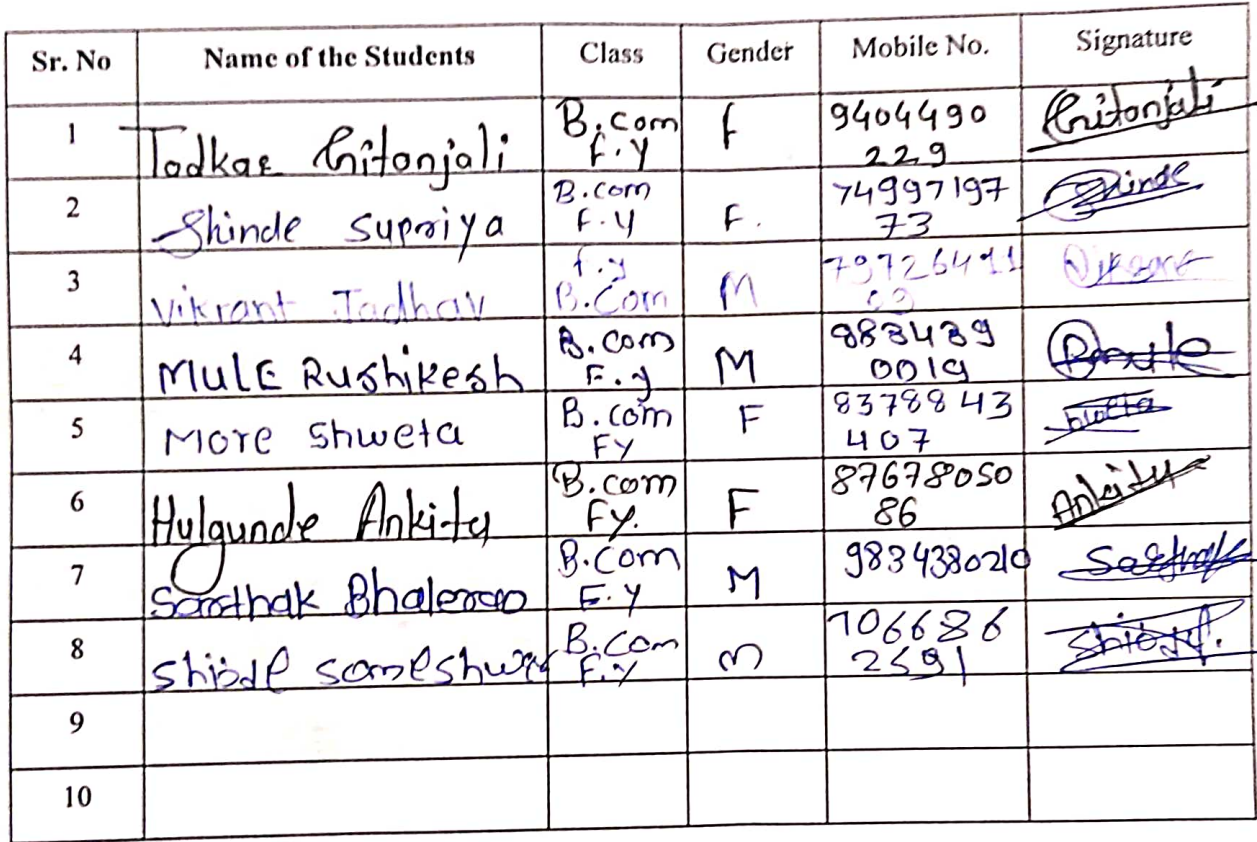 Sr. No Name of the Students Class Gender Mobile No. Signature
1 Tadkar Gitanjali B.com F.Y F 9404490 229 Gitanjali
2 Shinde Supriya B.com F.Y F. 74997197 73 Shinde
3 Vikrant Jadhav F.Y B.Com M 79726411
4 MulE Rushikesh B.com F.y M 983439 0019
5 More Shweta B.com FY F 8378843 407
6 Hulgunde Ankita B.com FY. F 87678050 86 Ankita
7 Sarthak Bhalerao B.Com F.Y M 9834380210 Sarthak
8 Shinde someshwar B.Com F.Y m 706686 2591
9
10